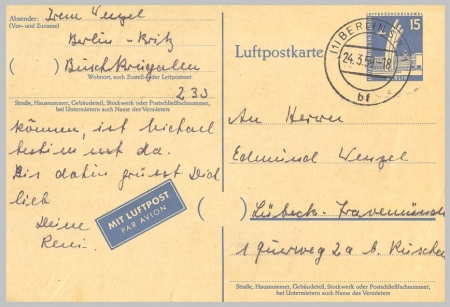 Absender: Irem Wenzel
(Vor- und Zuname)
Berlin-Britz
( ) Buschkrugallee
Wohnort, auch Zustell- oder Leitpostamt
233
Straße, Hausnummer, Gebäudeteil, Stockwerk oder Postschließfachnummer,
bei Untermietern auch Name des Vermieters
können, ist Michael
bestimmt da.
Bis dahin grüsst Dich
lieb
Deine
Reni.
MIT LUFTPOST
PAR AVION
Luftpostkarte
15
(1) BERLIN
24.3.58-18
bf
An Herrn
Edmund Wenzel
( )
Lübeck-Travemünde
1 Querweg 2a b.
Straße, Hausnummer, Gebäudeteil, Stockwerk oder Postschließfachnummer,
bei Untermietern auch Name des Vermieters